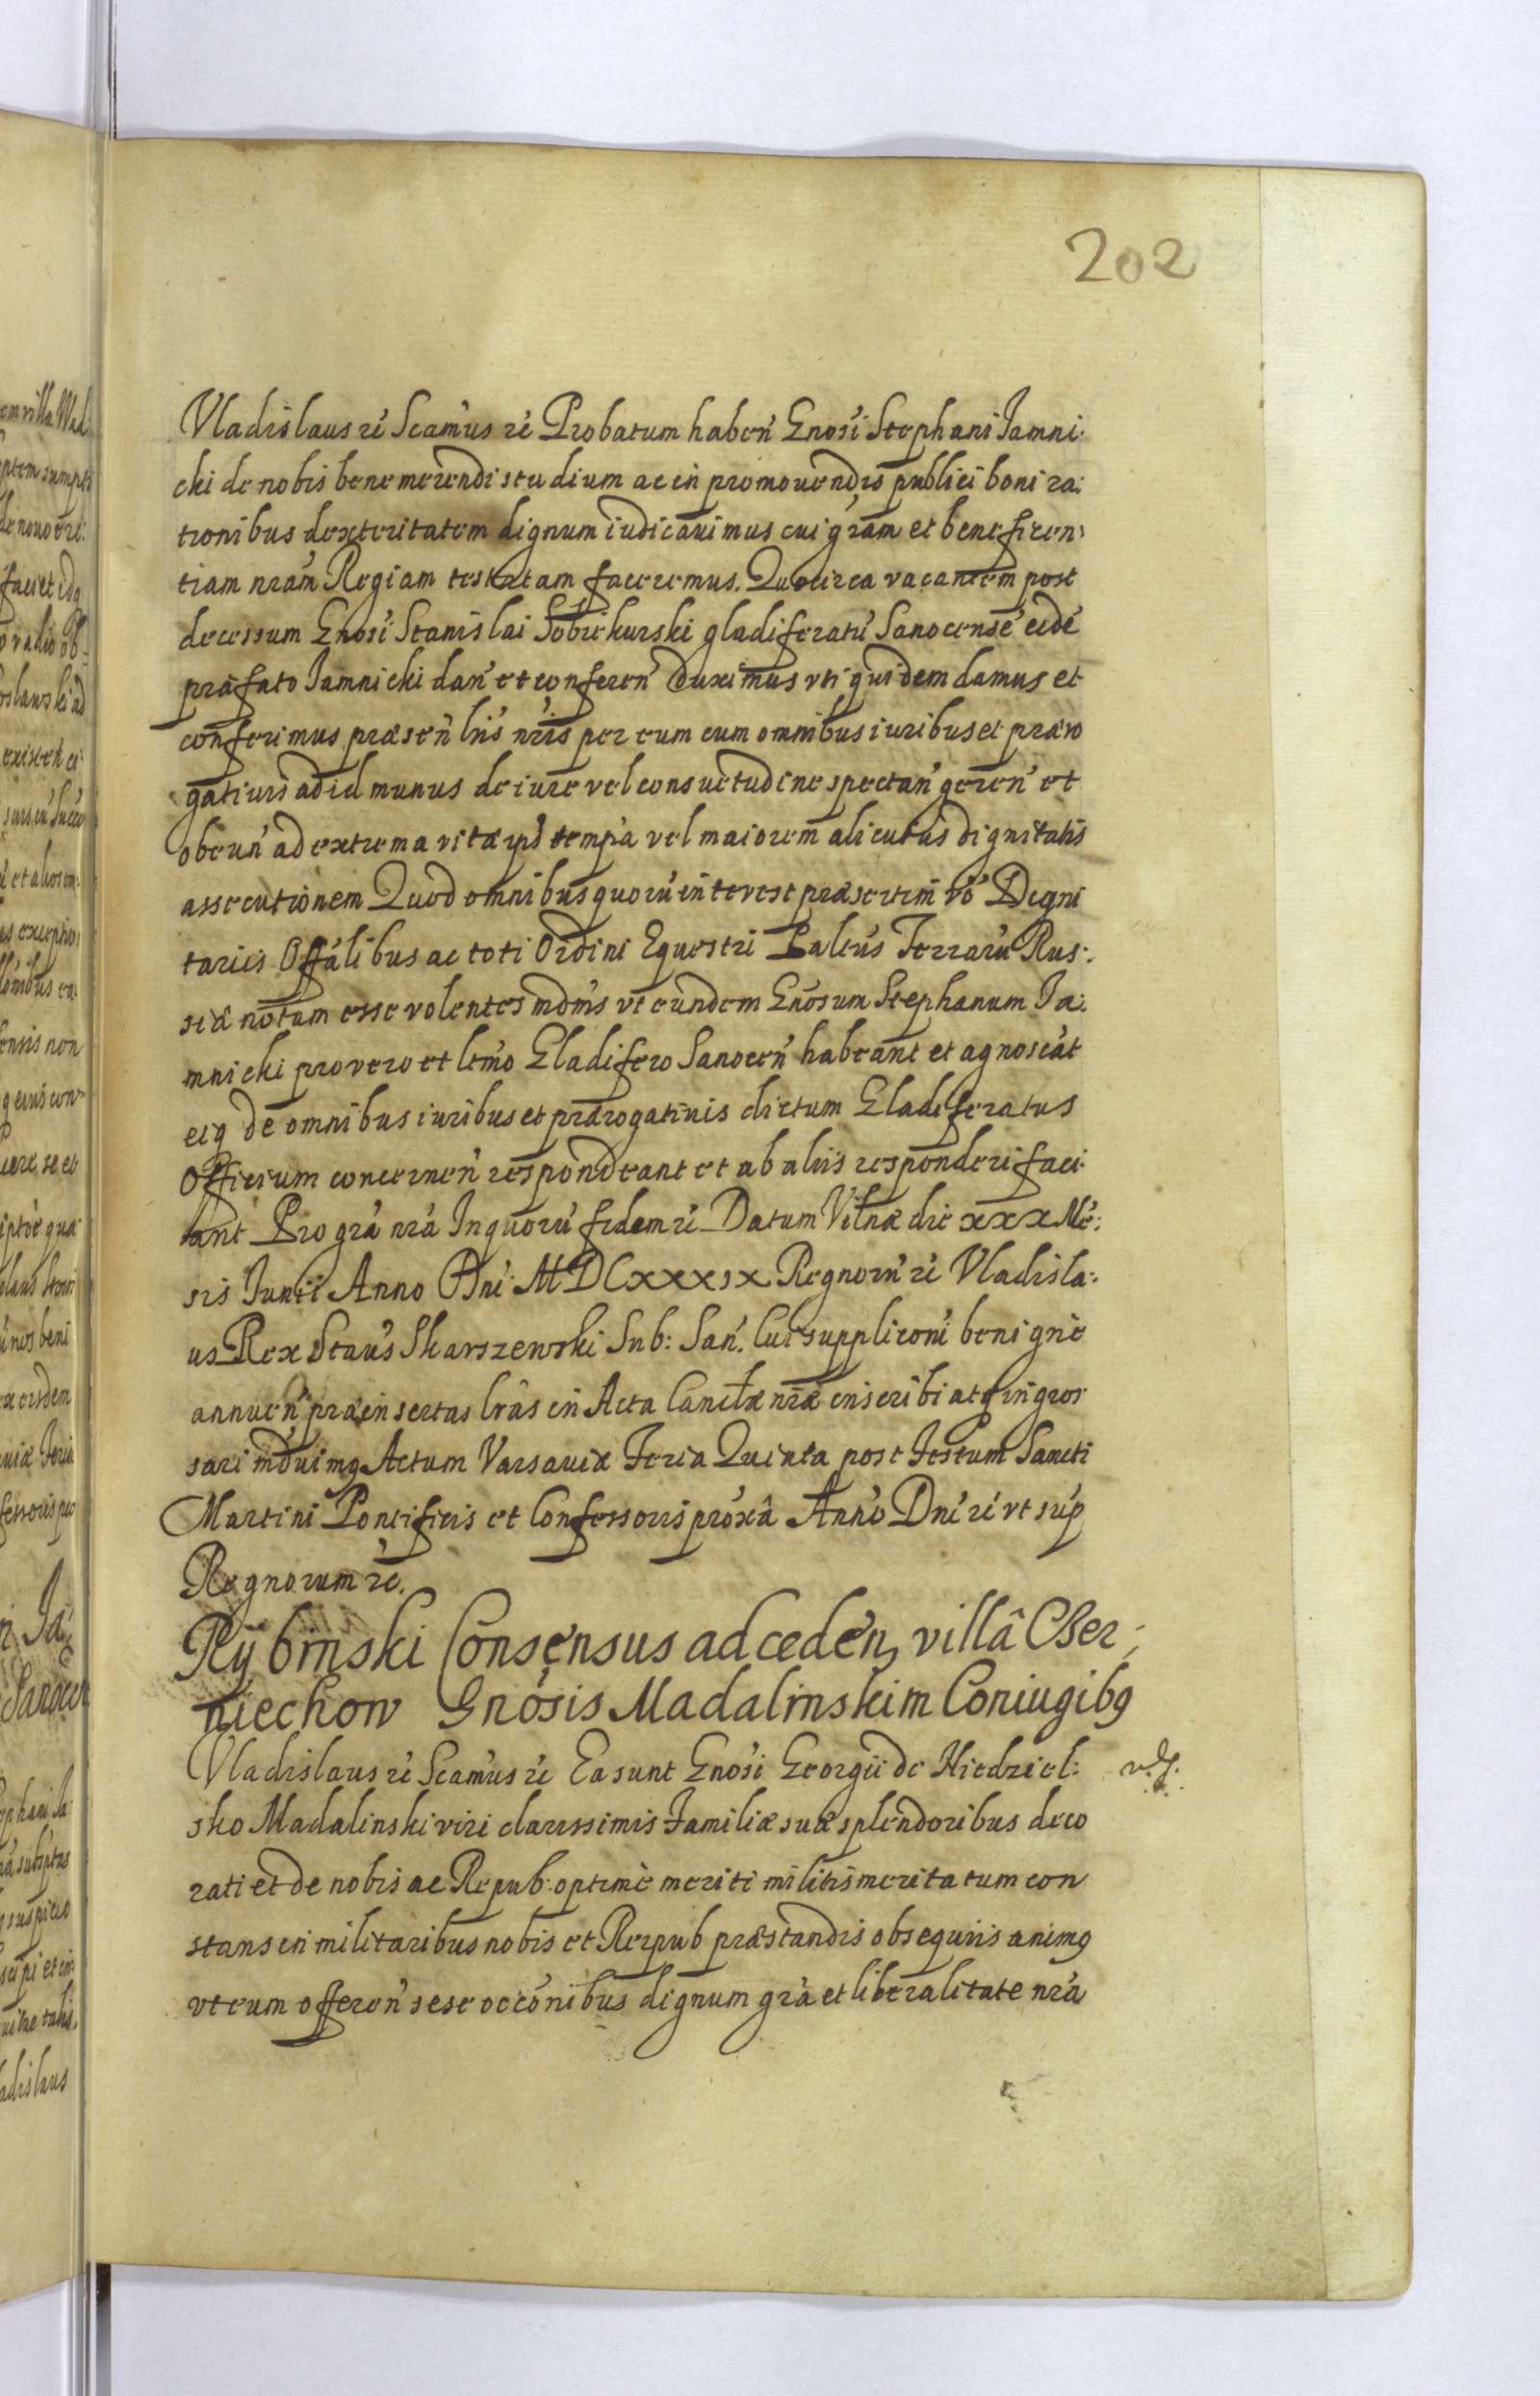 202
Vladislaus rc̃ Scamus rc̃ Probatum haben̄ Gnosi Stephani Jamni-
cki de nobis bene merendi studium ac in promouendis publici boni ra-
tionibus dexteritatem dignum iudicauimus cui gram et beneficen-
tiam nram Regiam testatam faceremus. Quocirca vacantem post
decessum Gnosi Stanislai Sobiekurski gladiferatū Sanocensē eidē
præfato Jamnicki dan̄ et conferen̄ duximus vti quidem damus et
conferimus præsen̄ lris nris per eum cum omnibus iuribus et præro
gatiuis ad id munus de iure vel consuetudine spectan̄ geren̄ et
obeun̄ ad extrema vitæ ipsi tempa vel maiorem alicuius dignitatis
assecutionem Quod omnibus quorū interest præsertim vō Digni
tariis Offalibus ac toti Ordini Equestri Paltus Terrarū Rus-
siæ notum esse volentes mdmus vt eundem Gnosum Stephanum Ja-
mnicki pro vero et ltmo Gladifero Sanocen̄ habeant et agnoscāt
eiq de omnibus iuribus et prærogatiuis dictum Gladiferatus
Officium concernen̄ respondeant et ab aliis responderi faci-
ant Pro gra nra In quorū fidem rc̃ Datum Vilnæ die xxx Mē-
sis Junii Anno Dni MDCxxxix Regnorū rc̃ Vladisla-
us Rex Staus Skarszewski Sub: San̄. Cui suppliconi benigne
annuen̄ præinsertas lras in Acta Canclæ nræ inscribi atq ingros
sari mduimq Actum Varsauiæ Feria Quinta post Festum Sancti
Martini Pontificis et Confessoris proxa Anno Dni rc̃ vt sup
Regnorum rc̃.
Rybinski Consensus ad ceden, villā Czer-
niechow Gnosis Madalinskim Coniugibq
Vladislaus rc̃ Scamus rc̃ Ea sunt Gnosi Georgii de Niedziel-
sko Madalinski viri clarissimis Familiæ suæ splendoribus deco
rati et de nobis ac Repub. optime meriti militis merita tum con
stans in militaribus nobis et Reipub præstandis obsequiis animq
vt eum offeren̄ sese occonibus dignum gra et liberalitate nra